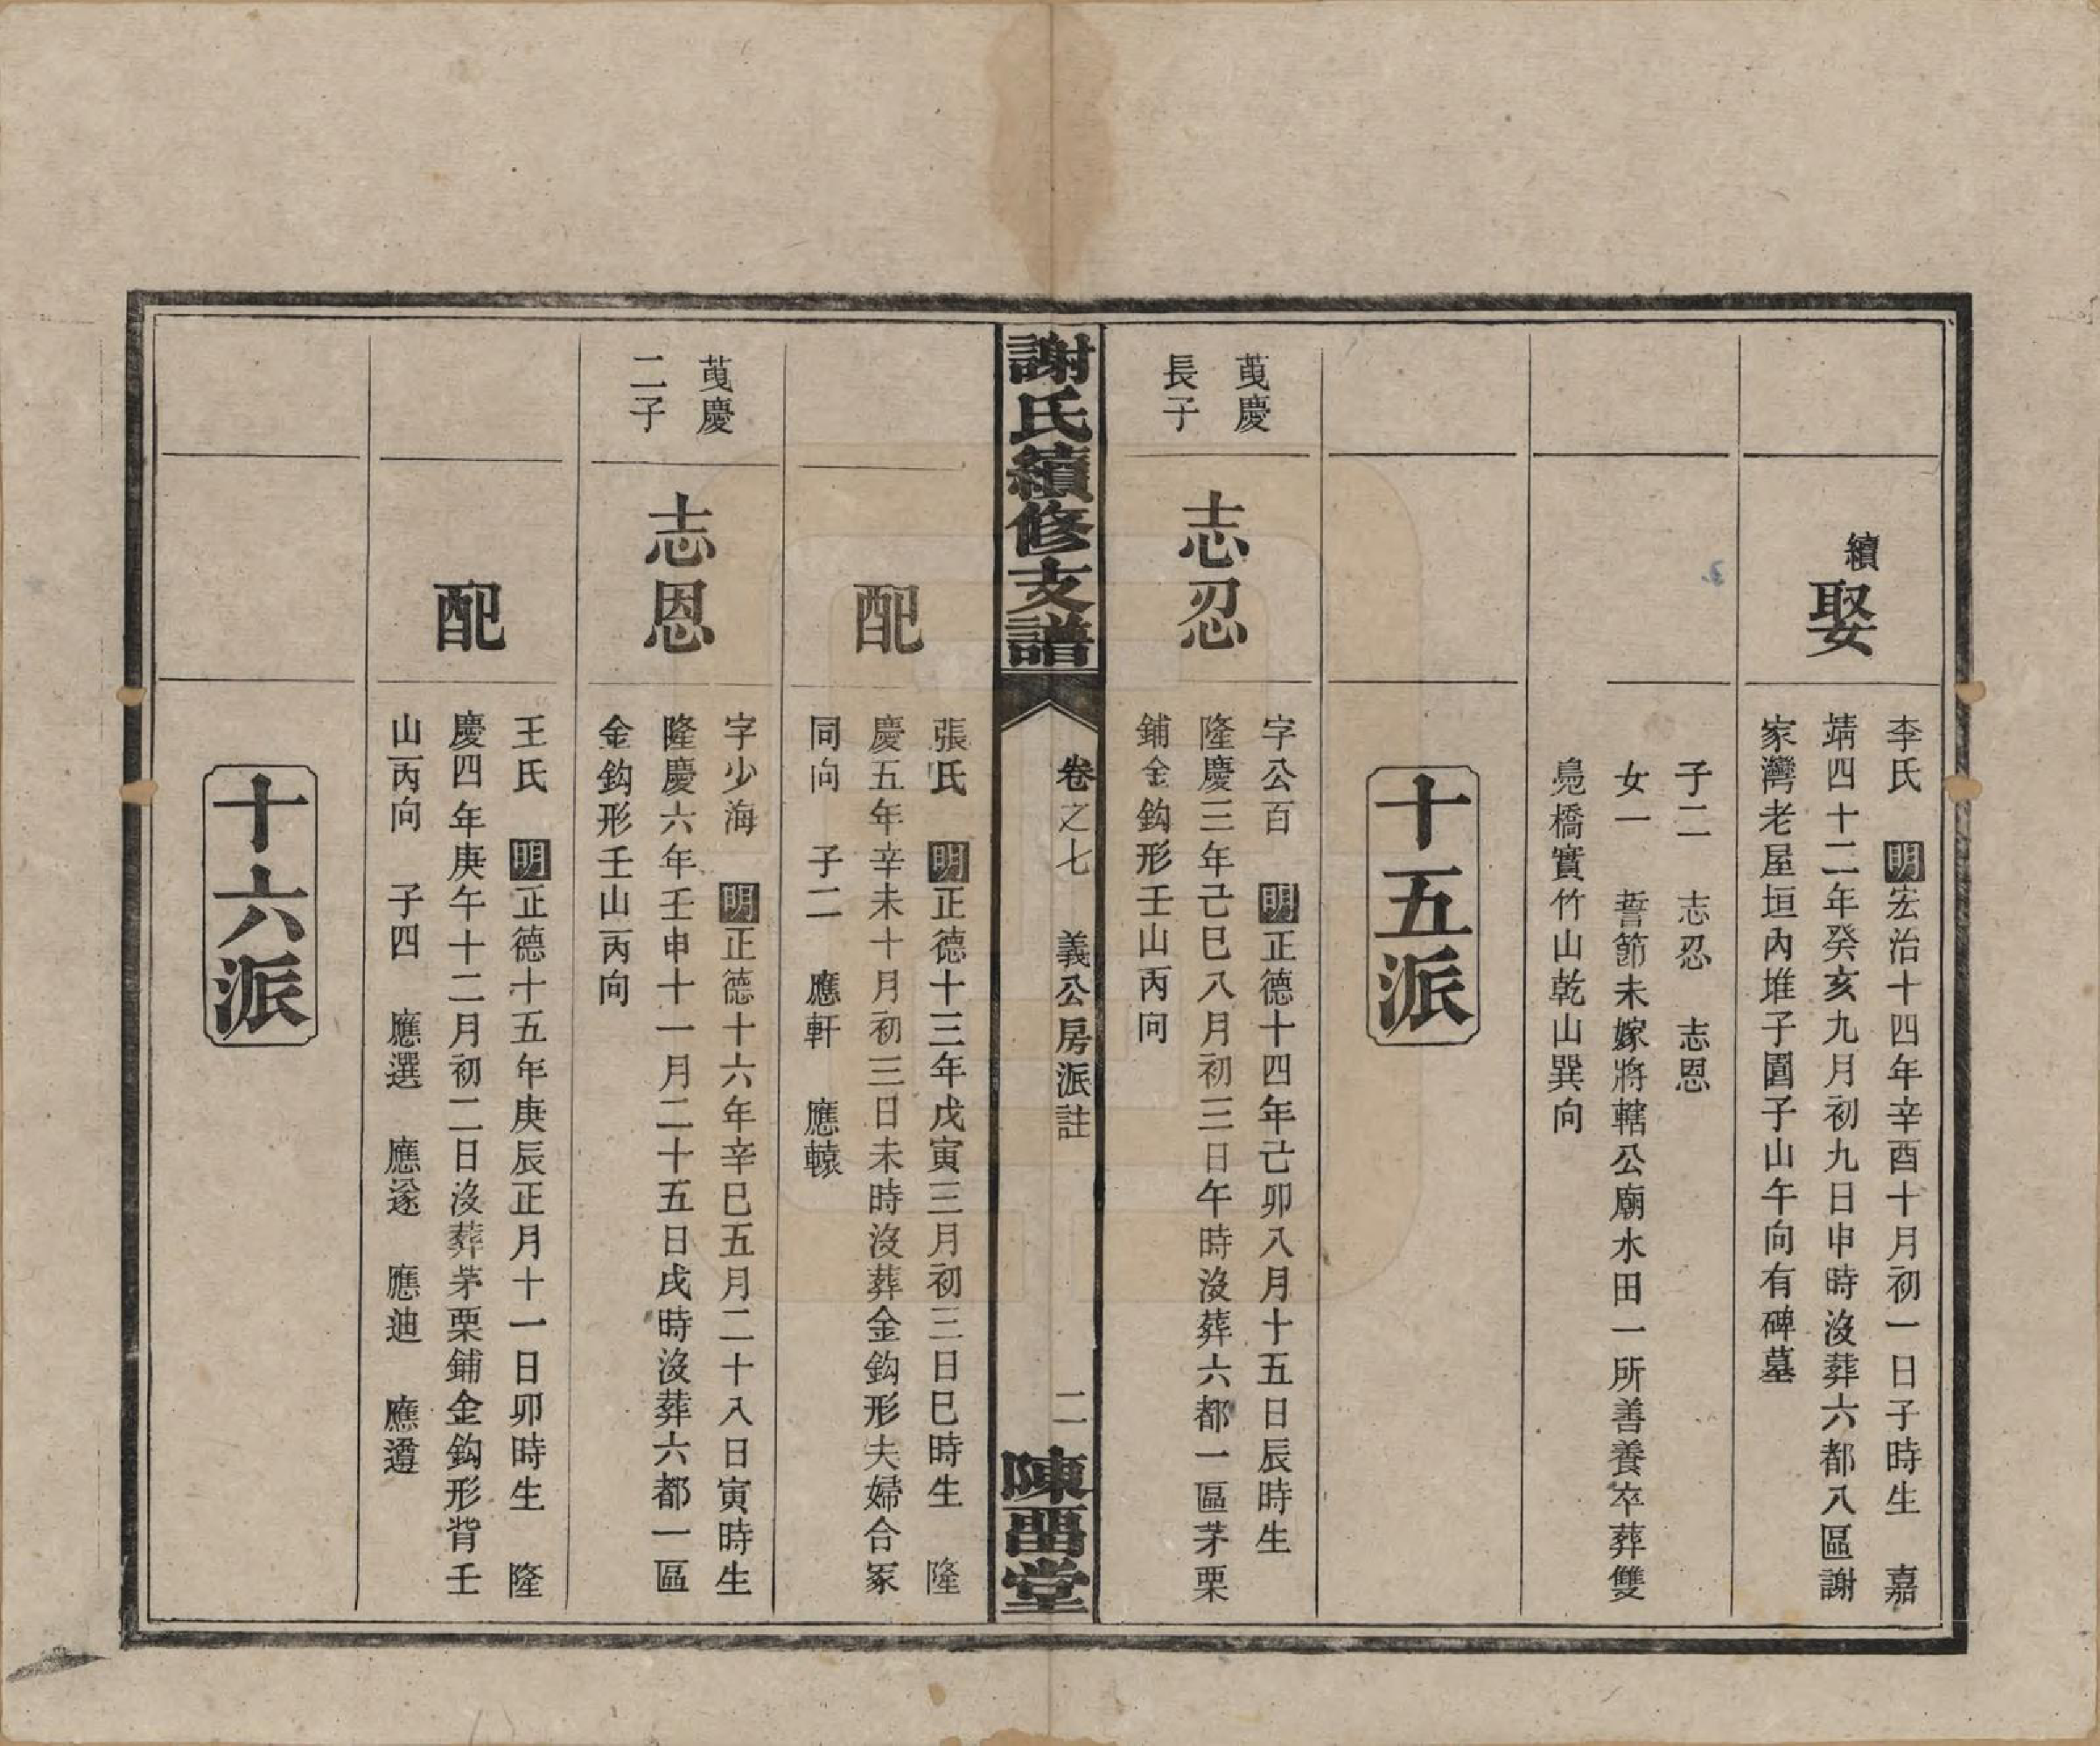 續娶
李氏　明宏治十四年辛酉十月初一日子時生　嘉
靖四十二年癸亥九月初九日申時沒葬六都八區謝
家灣老屋垣內堆子園子山午向有碑墓
子二　志忍　志恩
女一　誓節未嫁將轄公廟水田一所善養卒葬雙
鳧橋實竹山乾山巽向
十五派
蒷慶
長子
志忍
字公百　明正德十四年己卯八月十五日辰時生
隆慶三年己巳八月初三日午時沒葬六都一區茅栗
鋪金鈎形壬山丙向
謝氏續修支譜
卷之七　義公房派註
二
陳畱堂
配
張氏　明正德十三年戊寅三月初三日巳時生　隆
慶五年辛未十月初三日未時沒葬金鈎形夫婦合冢
同向　子二　應軒　應轅
蒷慶
二子
志恩
字少海　明正德十六年辛巳五月二十八日寅時生
隆慶六年壬申十一月二十五日戌時沒葬六都一區
金鈎形壬山丙向
配
王氏　明正德十五年庚辰正月十一日卯時生　隆
慶四年庚午十二月初二日沒葬茅栗鋪金鈎形背壬
山丙向　子四　應選　應遂　應迪　應遵
十六派